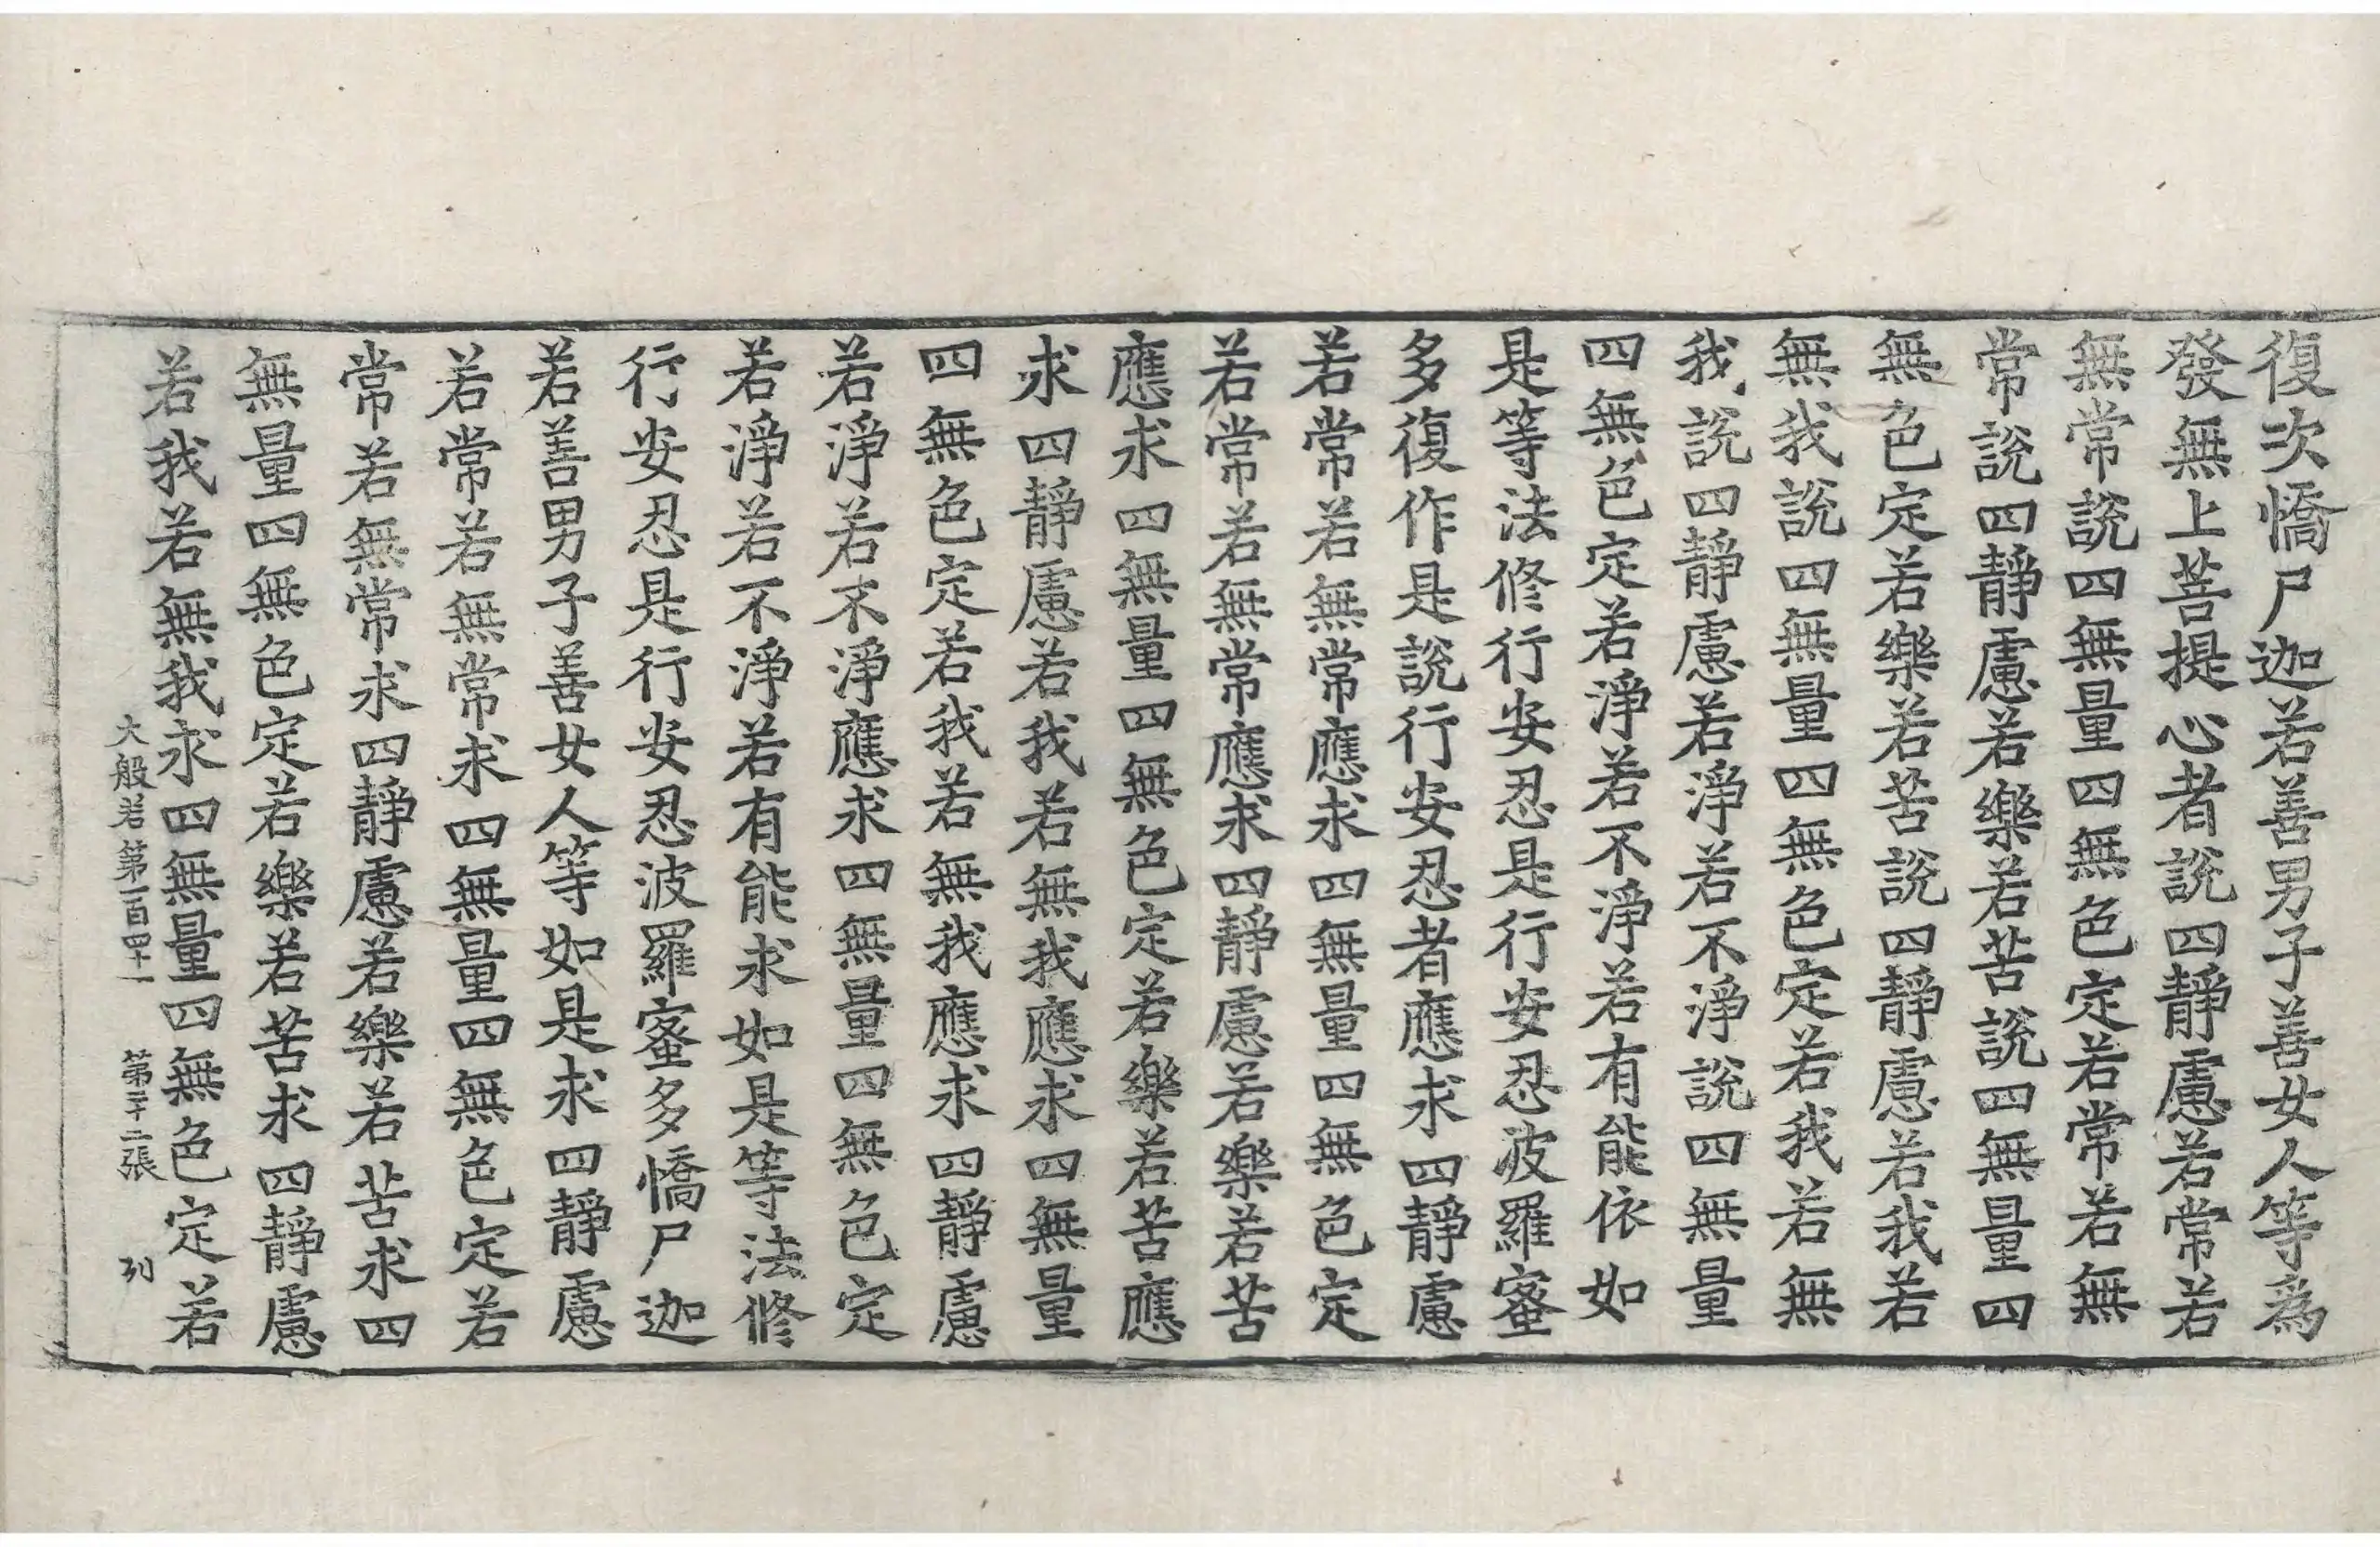 復次憍尸迦若善男子善女人等爲
發無上菩提心者說四靜慮若常若
無常說四無量四無色定若常若無
常說四靜慮若樂若苦說四無量四
無色定若樂若苦說四靜慮若我若
無我說四無量四無色定若我若無
我說四靜慮若淨若不淨說四無量
四無色定若淨若不淨若有能依如
是等法修行安忍是行安忍波羅蜜
多復作是說行安忍者應求四靜慮
若常若無常應求四無量四無色定
若常若無常應求四靜慮若樂若苦
應求四無量四無色定若樂若苦應
求四靜慮若我若無我應求四無量
四無色定若我若無我應求四靜慮
若淨若不淨應求四無量四無色定
若淨若不淨若有能求如是等法修
行安忍是行安忍波羅蜜多憍尸迦
若善男子善女人等如是求四靜慮
若常若無常求四無量四無色定若
常若無常求四靜慮若樂若苦求四
無量四無色定若樂若苦求四靜慮
若我若無我求四無量四無色定若
大般若第一百四十一 第二十二張 列